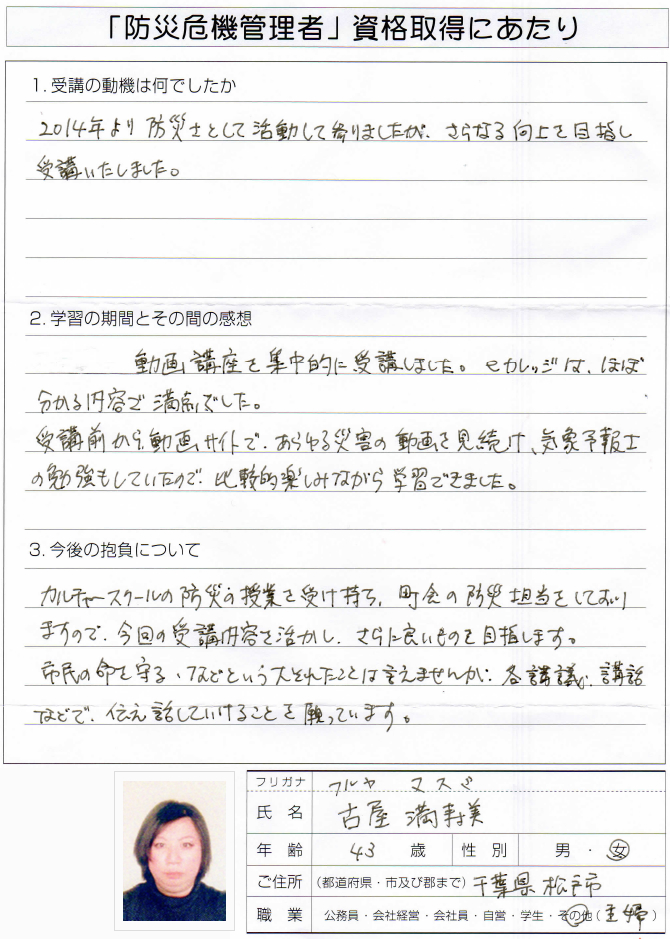 「防災危機管理者」資格取得にあたり
1. 受講の動機は何でしたか
2014年より防災士として活動して参りましたが、さらなる向上を目指し
受講いたしました。
2. 学習の期間とその間の感想
動画講座を集中的に受講しました。セカレッジは、ほぼ
分かる内容で満点でした。
受講前から動画サイトで、あらゆる災害の動画を見続け、気象予報士
の勉強もしていたので、比較的楽しみながら学習できました。
3. 今後の抱負について
カルチャースクールの防災の授業を受け持ち、町会の防災担当をしており
ますので、今回の受講内容を活かし、さらに良いものを目指します。
市民の命を守る、などという大それたことは言えませんが、各講議、講話
などで、伝え話していけることを願っています。
フリガナ フルヤ マスミ
氏名 古屋 満寿美
年齢 43 歳 性別 男・女
ご住所 (都道府県・市及び郡まで) 千葉県松戸市
職業 公務員・会社経営・会社員・自営・学生・その他(主婦)